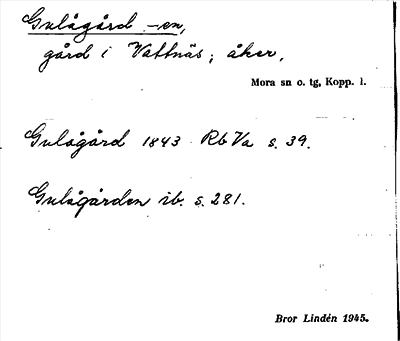 Gulågård, -en,
gård i Vattnäs; åker.
Mora sn o. tg, Kopp. l.
Gulågård 1843 Rb Va s. 39.
Gulågården ib. s. 281.
Bror Lindén 1945.